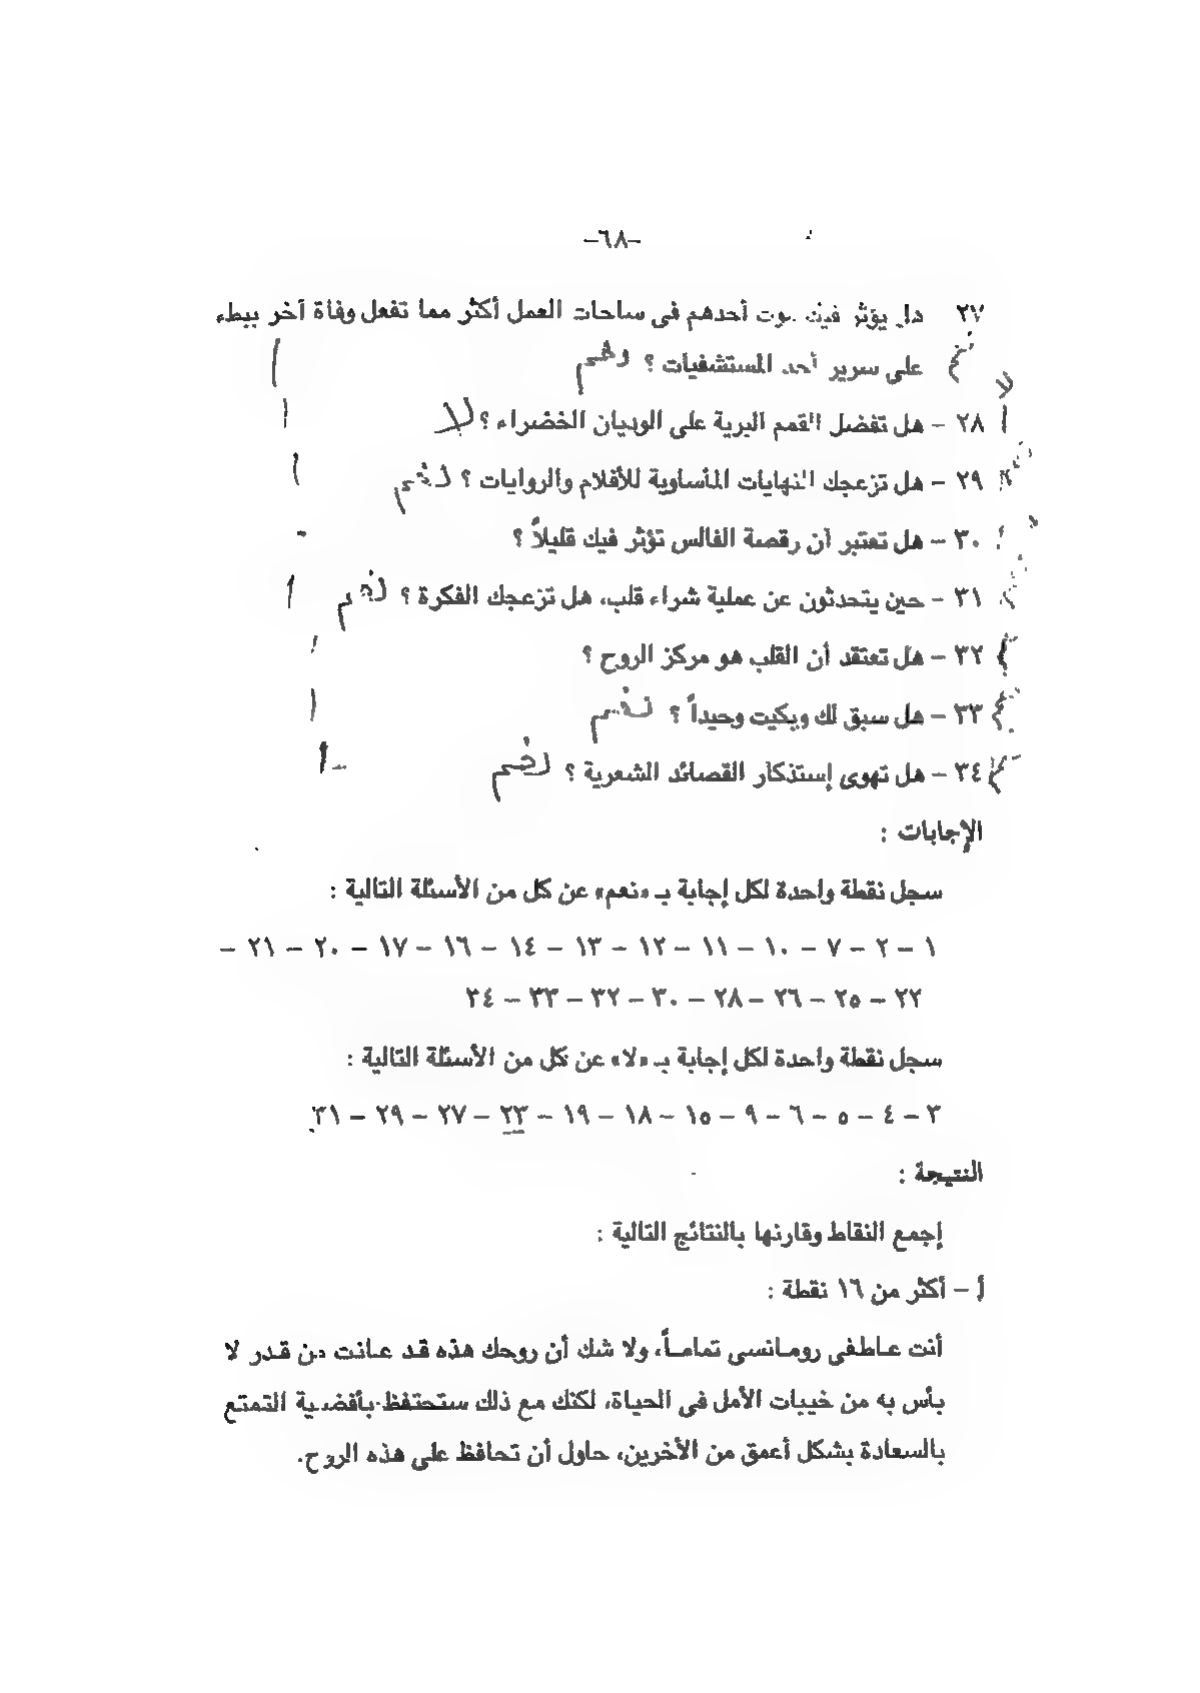 -٦٨-
٢٧ هل يؤثر فيك موت أحدهم فى ساحات العمل أكثر مما تفعل وفاة آخر ببطء
على سرير أحد المستشفيات ؟ نعم
٢٨ - هل تفضل القمم البرية على الوديان الخضراء ؟ لا
٢٩ - هل تزعجك النهايات المأساوية للأفلام والروايات ؟ نعم
٣٠ - هل تعتبر أن رقصة الفالس تؤثر فيك قليلاً ؟
٣١ - حين يتحدثون عن عملية شراء قلب، هل تزعجك الفكرة ؟ نعم
٣٢ - هل تعتقد أن القلب هو مركز الروح ؟
٣٣ - هل سبق لك وبكيت وحيداً ؟ نعم
٣٤ - هل تهوى إستذكار القصائد الشعرية ؟ نعم
الإجابات :
سجل نقطة واحدة لكل إجابة بـ «نعم» عن كل من الأسئلة التالية :
١ - ٢ - ٧ - ١٠ - ١١ - ١٢ - ١٣ - ١٤ - ١٦ - ١٧ - ٢٠ - ٢١ -
٢٢ - ٢٥ - ٢٦ - ٢٨ - ٣٠ - ٣٢ - ٣٣ - ٣٤
سجل نقطة واحدة لكل إجابة بـ «لا» عن كل من الأسئلة التالية :
٣ - ٤ - ٥ - ٦ - ٩ - ١٥ - ١٨ - ١٩ - ٢٣ - ٢٧ - ٢٩ - ٣١
النتيجة :
إجمع النقاط وقارنها بالنتائج التالية :
أ - أكثر من ١٦ نقطة :
أنت عاطفى رومانسى تماماً، ولا شك أن روحك هذه قد عانت من قدر لا
بأس به من خيبات الأمل فى الحياة، لكنك مع ذلك ستحتفظ بأفضلية التمتع
بالسعادة بشكل أعمق من الأخرين، حاول أن تحافظ على هذه الروح.